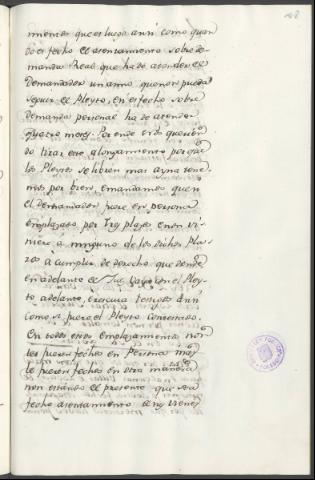 mientos que es luego assi como quan
do es fecho el asentamiento sobre de
manda Real que ha de atender el
Demandador un anno que non pueda
seguir el Pleyto, en es fecho sobre
demanda personal ha de atender
quatro meses. Por ende Nos querien
do tirar este alongamiento porque
los Pleytos se libren mas ayna tene
mos por bien, e mandamos que si
el demandador fuere en persona
emplazado por Trez plazos e non vi
niere a ninguno de los dichos Pla
zos a cumplir de derecho que dende
en adelante el Juez vaya en el Pley
to adelante, e resciva testigos assi
como si fuera el Pleyto contestado.
En todos estos emplazamientos non
les fueren fechos en Persona mas
le fueren fechos en otra manera
non estando el presente que sea
fecho asentamiento